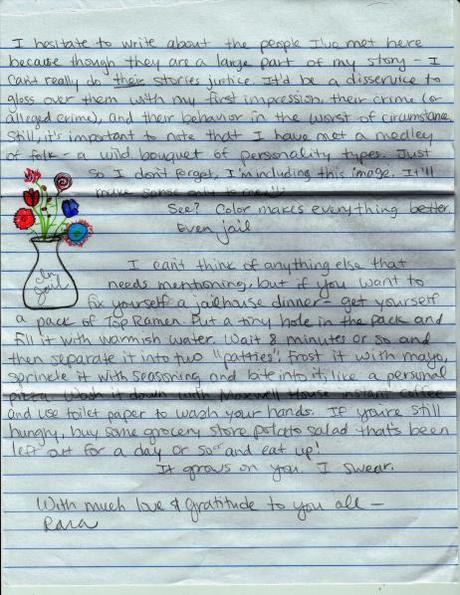 I hesitate to write about the people I've met here
because though they are a large part of my story - I
can't really do their stories justice. It'd be a disservice to
gloss over them with my first impression, their crime (or
alleged crime), and their behavior in the worst of circumstance.
Still, it's important to note that I have met a medley
of folk - a wild bouquet of personality types. Just
so I don't forget, I'm including this image. It'll
make sense only to me!
See? Color makes everything better.
Even jail
In
Jail
I can't think of anything else that
needs mentioning, but if you want to
fix yourself a jailhouse dinner - get yourself
a pack of Top Ramen. Put a tiny hole in the pack and
fill it with warmish water. Wait 8 minutes or so and
then separate it into two "patties". Frost it with mayo,
sprinkle it with seasoning and bite into it, like a personal
pizza. Wash it down with Maxwell House instant coffee
and use toilet paper to wash your hands. If you're still
hungry, buy some grocery store potato salad that's been
left out for a day or so and eat up!
It grows on you. I swear.
With much love & gratitude to you all -
Rara